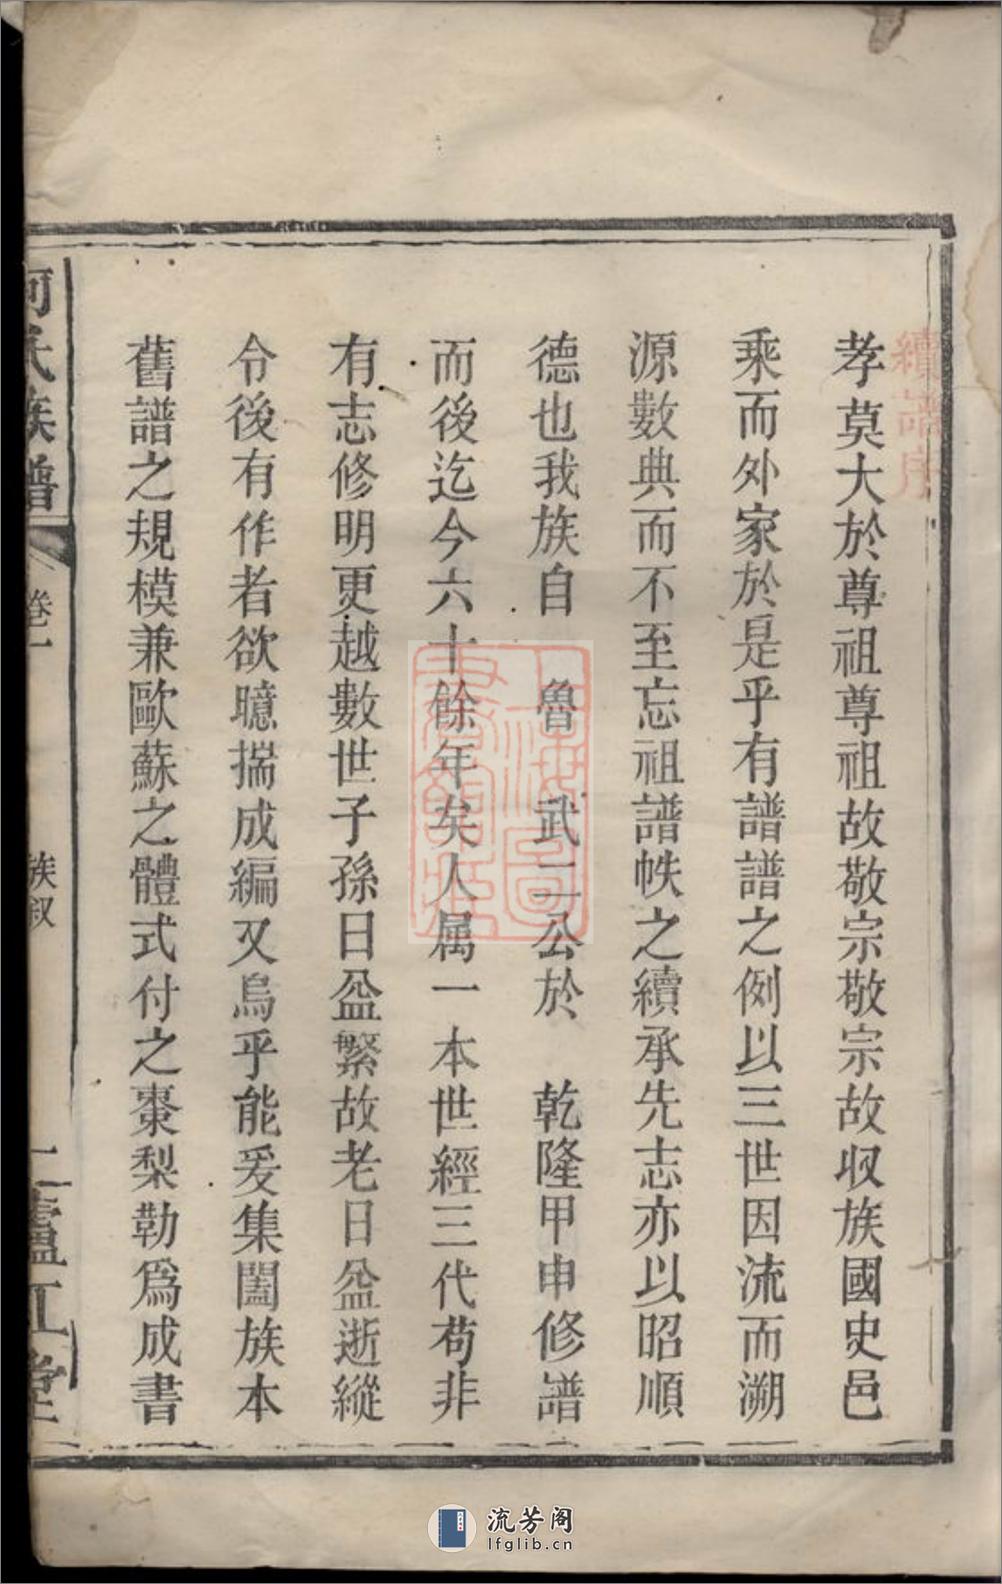 續譜序
孝莫大於尊祖尊祖故敬宗敬宗故収族國史邑
乘而外家於是乎有譜譜之例以三世因流而溯
源數典而不至忘祖譜帙之續承先志亦以昭順
德也我族自 魯 武二公於 乾隆甲申修譜
而後迄今六十餘年矣人属一本世經三代苟非
有志修明更越數世子孫日益繁故老日益逝縱
令後有作者欲臆揣成編又烏乎能爰集闔族本
舊譜之規模兼歐蘇之體式付之棗梨勒為成書
何氏族譜 卷一 族叙 廬江堂
上海圖書館藏
流芳阁
lfglib.cn